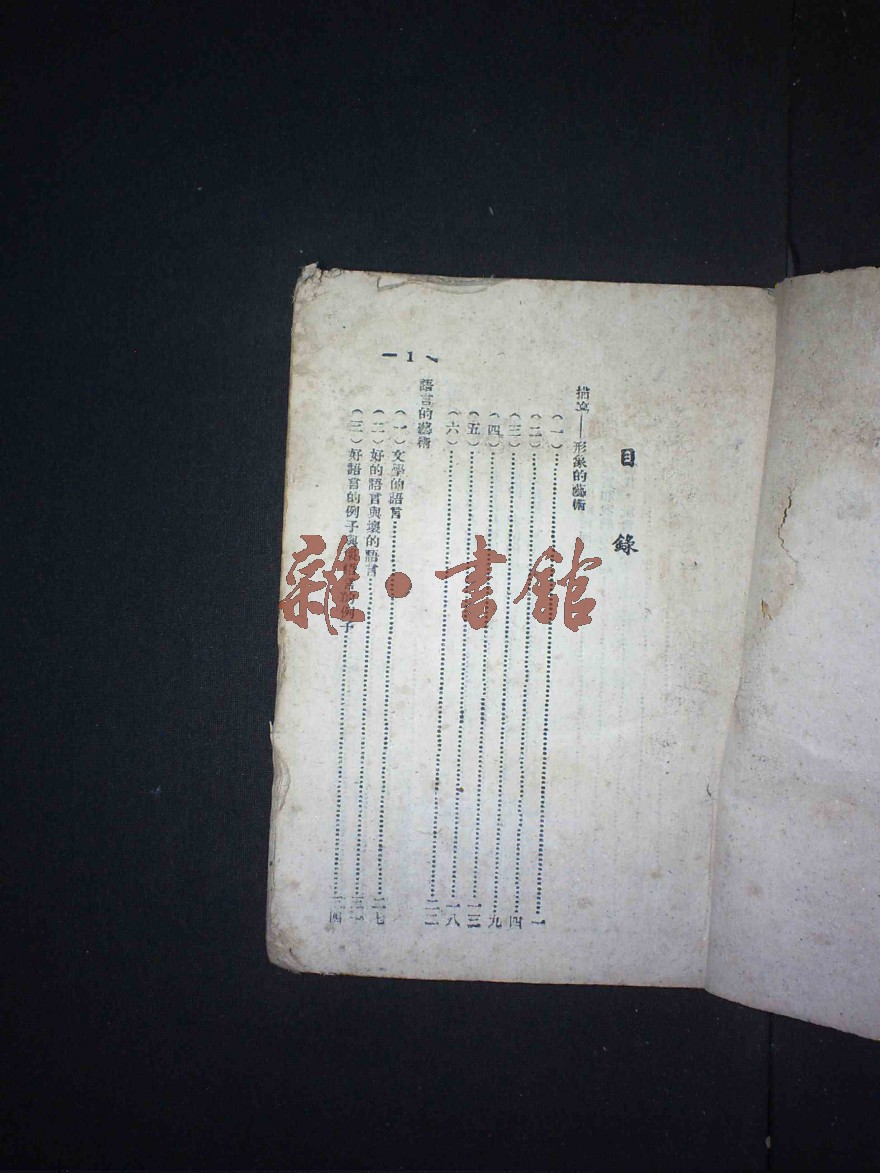 目錄
描寫——形象的藝術
(一)……一
(二)……四
(三)……九
(四)……一三
(五)……一八
(六)……二二
語言的藝術
(一)文學的語言……二七
(二)好的語言與壞的語言……三一
(三)好語言的例子與壞語言的例子……三四
— 1 —
雜·書館